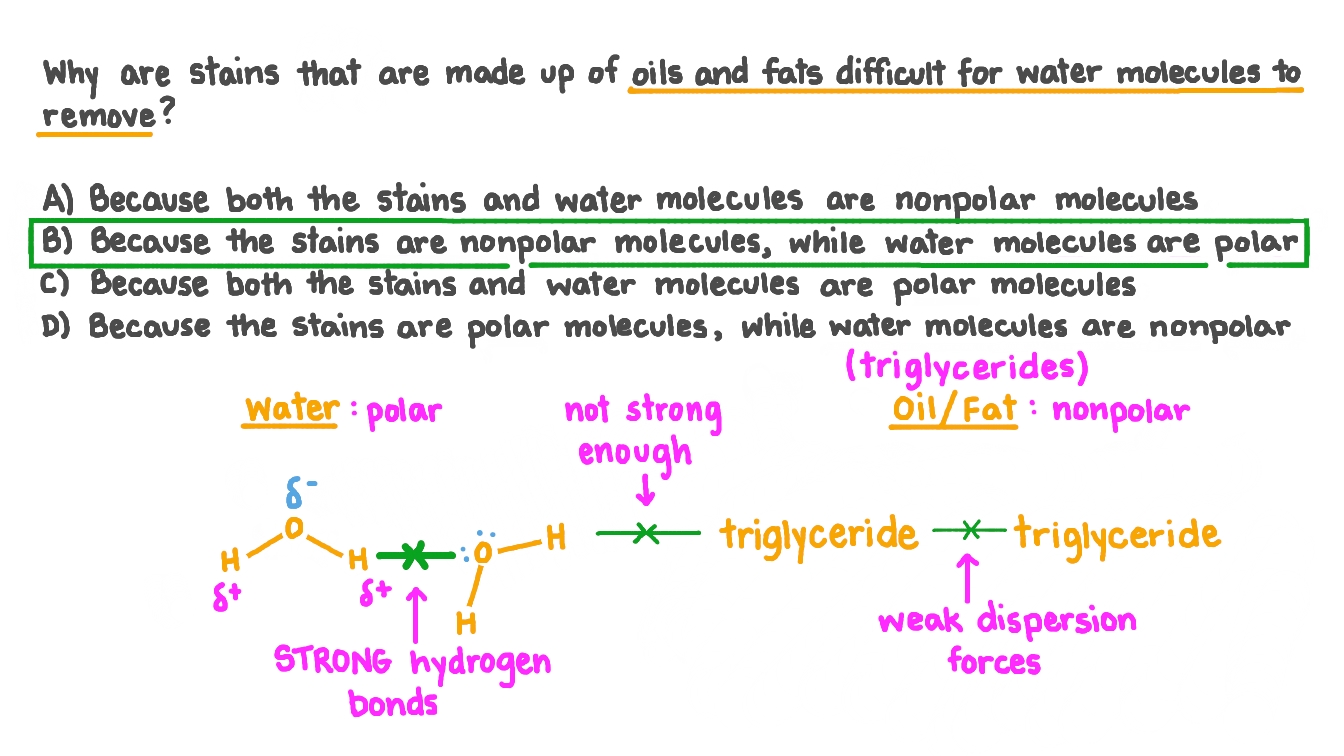 Why are stains that are made up of oils and fats difficult for water molecules to
remove?
A) Because both the stains and water molecules are nonpolar molecules
B) Because the stains are nonpolar molecules, while water molecules are polar
C) Because both the stains and water molecules are polar molecules
D) Because the stains are polar molecules, while water molecules are nonpolar
(triglycerides)
Water: polar
not strong
enough
Oil/Fat: nonpolar
δ-
O
H
H
δ+
δ+
:Ö
H
H
triglyceride
triglyceride
STRONG hydrogen
bonds
weak dispersion
forces